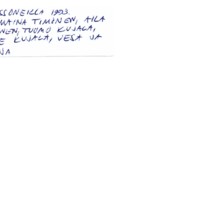 SSONEILLA 1953.
MAINA TIMONEN, AILA
NEN, TUOMO KUJALA,
E KUJALA, VESA JA